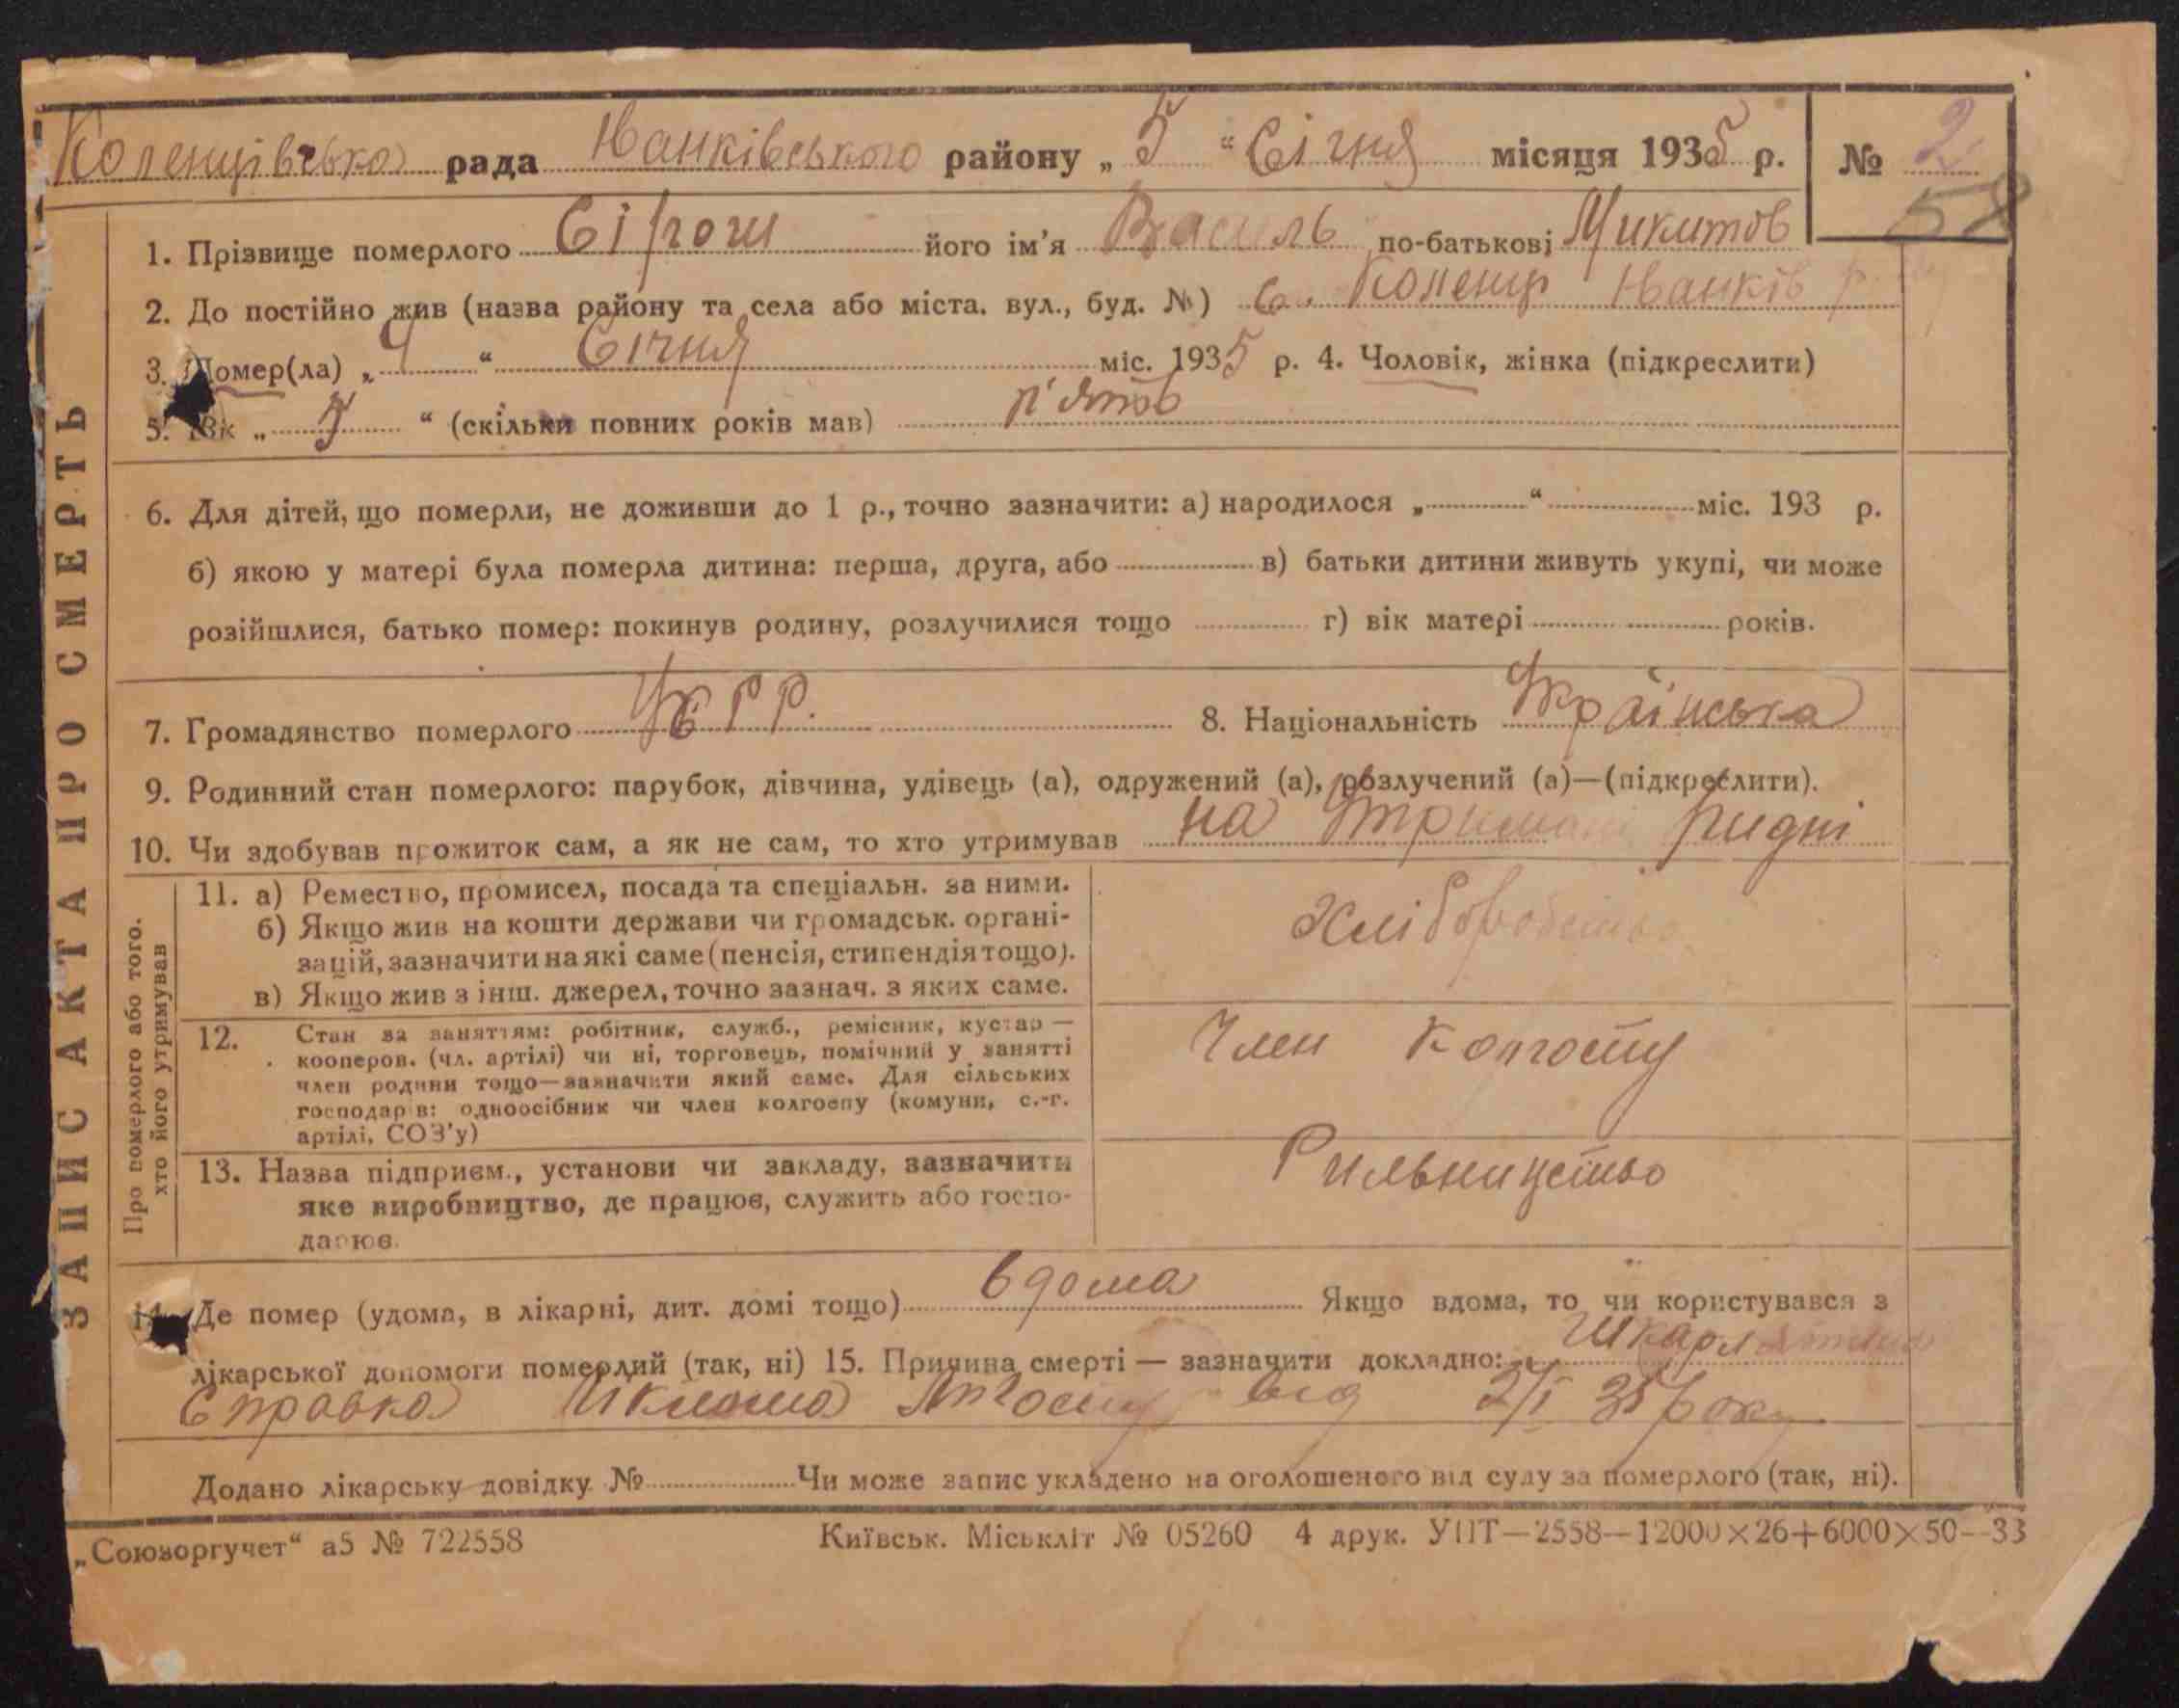 Коленцівська рада Іванківського району „ 5 “ Січня місяця 1935 р. № 2
58
1. Прізвище померлого його ім’я Василь по-батькові Микитов
2. До постійно жив (назва району та села або міста. вул., буд. №) с. Коленці Іванків р.
3. Помер(ла) „ 4 “ Січня міс. 1935 р. 4. Чоловік, жінка (підкреслити)
5. Вік „ 5 “ (скільки повних років мав) п'ятов
6. Для дітей, що померли, не доживши до 1 р., точно зазначити: а) народилося „ “ міс. 193 р.
б) якою у матері була померла дитина: перша, друга, або в) батьки дитини живуть укупі, чи може
розійшлися, батько помер: покинув родину, розлучилися тощо г) вік матері років.
7. Громадянство померлого УСРР. 8. Національність Українська
9. Родинний стан померлого: парубок, дівчина, удівець (а), одружений (а), розлучений (а)—(підкреслити).
10. Чи здобував прожиток сам, а як не сам, то хто утримував на Утримані Ридні
ЗАПИС АКТА ПРО СМЕРТЬ
Про померлого або того.
хто його утримував
11. а) Ремество, промисел, посада та спеціальн. за ними.
б) Якщо жив на кошти держави чи громадськ. органі-
зацій, зазначити на які саме (пенсія, стипендія тощо).
в) Якщо жив з інш. джерел, точно зазнач. з яких саме.
Хліборобство
12. Стан за заняттям: робітник, служб., ремісник, кустар —
кооперов. (чл. артілі) чи ні, торговець, помічний у занятті
член родини тощо—зазначити який саме. Для сільських
господарів: одноосібник чи член колгоспу (комуни, с.-г.
артілі, СОЗ’у)
Член Колгоспу
13. Назва підприєм., установи чи закладу, зазначити
яке виробництво, де працює, служить або госпо-
дарює.
Рильництво
14. Де помер (удома, в лікарні, дит. домі тощо) вдома Якщо вдома, то чи користувався з
лікарської допомоги померлий (так, ні) 15. Причина смерті — зазначити докладно: Шкарлятина
Справка від 2/I 35 року
Додано лікарську довідку № Чи може запис укладено на оголошеного від суду за померлого (так, ні).
„Союзоргучет“ а5 № 722558 Київськ. Міськліт № 05260 4 друк. УПТ—2558—12000×26+6000×50—33